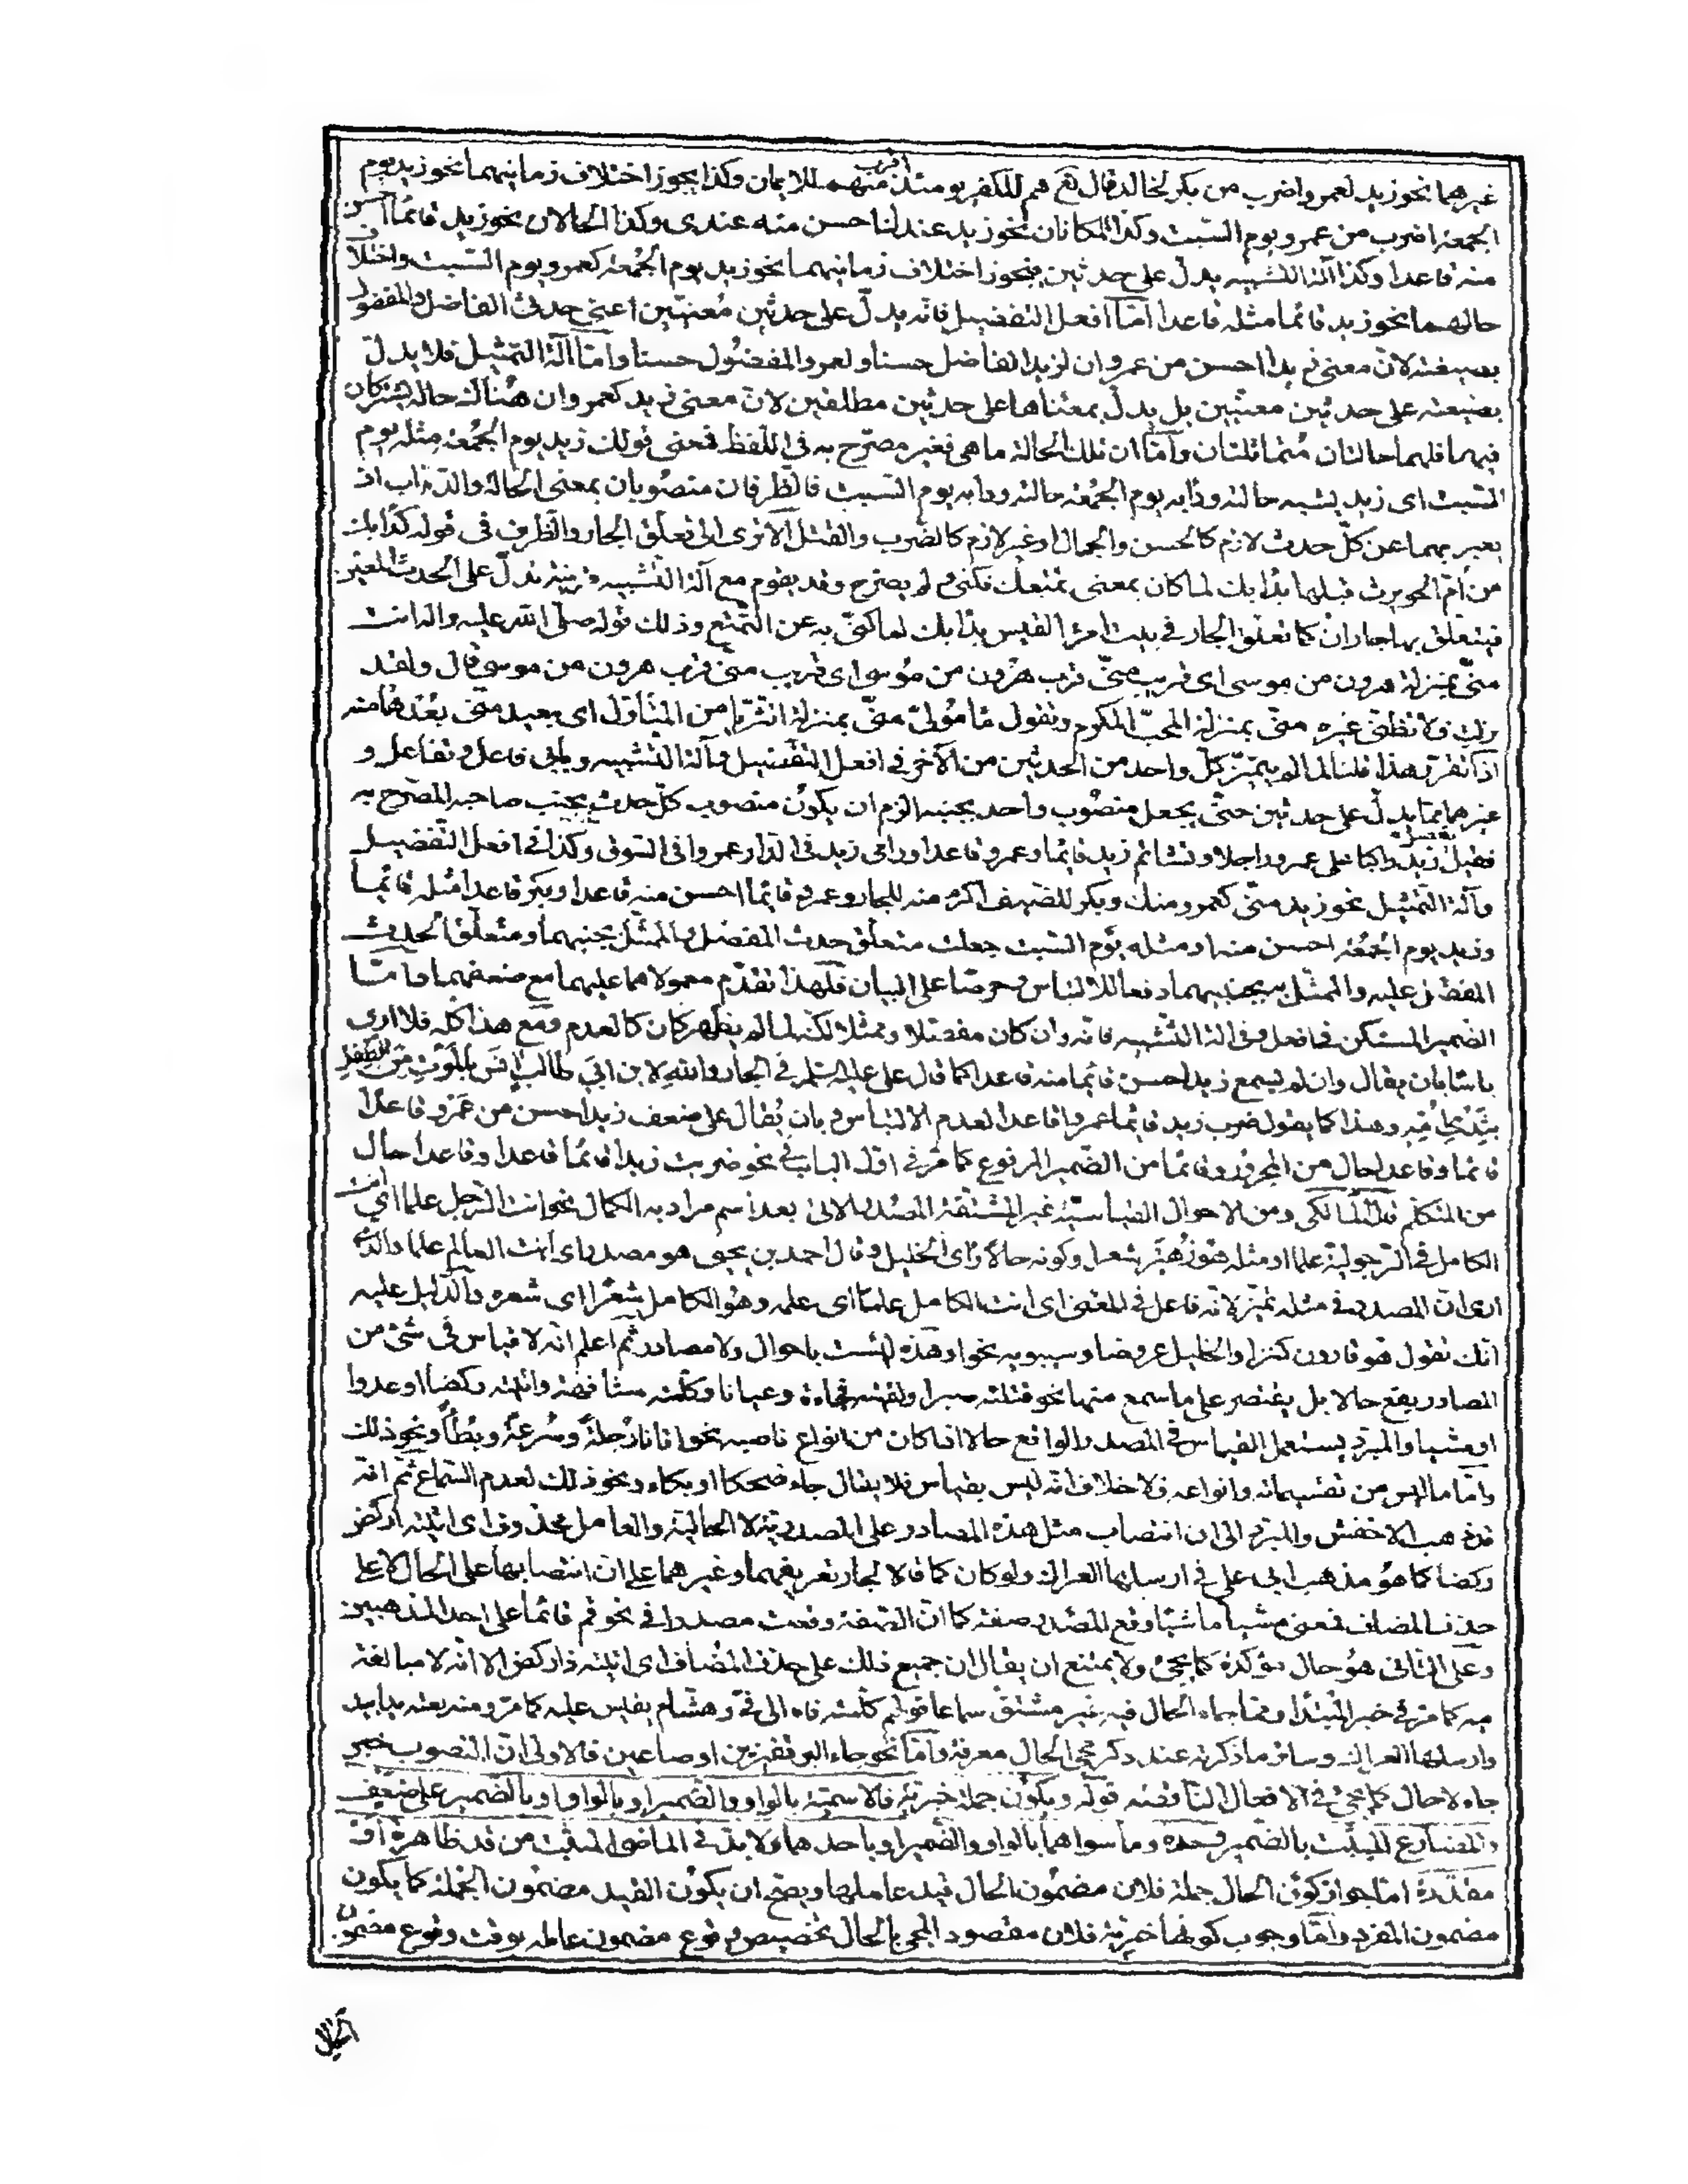 غيرهما نحو زيد لعمرو اضرب من بكر لخالد قال تع هم للكفر يومئذ اقرب منهم للايمان وكذا يجوز اختلاف زمانيهما نحو زيد يوم
الجمعة اضرب من عمرو يوم السبت وكذا المكانان نحو زيد عندنا احسن منه عندى وكذا الحالان نحو زيد قائما احسن
منه قاعدا وكذا آلة التشبيه يدل على حدثين فيجوز اختلاف زمانيهما نحو زيد يوم الجمعة كعمرو يوم السبت واختلاف
حاليهما نحو زيد قائما مثله قاعدا امّا افعل التفضيل فانه يدلّ على حدثين معنيّين اعنى حدث الفاضل والمفضول
بصيغته لانّ معنى زيد احسن من عمرو ان لزيد الفاضل حسنا ولعمرو المفضول حسنا وامّا آلة التمثيل فلا يدلّ
بصيغته على حدثين معينين بل يدلّ بمعناها على حدثين مطلقين لانّ معنى زيد كعمرو ان هناك حالة يشتركان
فيهما فلهما حالتان متماثلتان وامّا ان تلك الحالة ما هى فغير مصرّح به فى اللفظ فمعنى قولك زيد يوم الجمعة مثله يوم
السبت اى زيد يشبه حالته ودابه يوم الجمعة حالته ودابه يوم السبت فالظرفان منصوبان بمعنى الحالة والداب اذ
يعبر بهما عن كلّ حدث لازم كالحسن والجمال او غير لازم كالضرب والقتل الا ترى الى تعلّق الجار والظرف فى قوله كدابك
من امّ الحويرث قبلها بدابك لما كان بمعنى تمتعك فكنى ولم يصرح وقد يقوم مع آلة التشبيه قرينة تدلّ على الحدث المعين
فيتعلّق بها جاران كما تعلّق الجار فى بيت امرئ القيس بدابك لما كنى به عن التمتّع وذلك قوله صلى الله عليه واله انت
منّى بمنزلة هرون من موسى اى قريب منّى قرب هرون من موسى اى قريب منى قرب هرون من موسى قال ولقد
نزلت فلا تظنّى غيره منّى بمنزلة المحبّ المكرم وتقول ما مولىّ منّى بمنزلة الثريّا من المتناول اى بعيد منّى بعدها منه
اذا تقرّر هذا قلنا لما لم يتميّز كلّ واحد من الحدثين من الآخر فى افعل التفضيل وآلة التشبيه وبابى فاعل وتفاعل و
غيرهما ممّا يدلّ على حدثين حتّى يجعل منصوب واحد بجنبه الزم ان يكون منصوب كلّ حدث بجنب صاحبه المصرّح به
فقيل زيد راكبا على عمرو راجلا وتشاتم زيد قائما وعمرو قاعدا ورامى زيد فى الدار عمروا فى السوق وكذا فى افعل التفضيل
وآلة التمثيل نحو زيد منّى كعمرو منك وبكر للضيف اكرم منه للجار وعمرو قائما احسن منه قاعدا وبكر قاعدا مثله قائما
وزيد يوم الجمعة احسن منه او مثله يوم السبت جعلت متعلّق حدث المفضل والممثّل بجنبهما ومتعلّق الحدث
المفضّل عليه والممثّل به بجنبهما دفعا للالتباس وحرصا على البيان فلهذا تقدّم معمولاهما عليهما مع ضعفهما وامّا
الضمير المستكن فى افعل وفى آلة التشبيه فانه وان كان مفضلا وممثلا لكنه لما لم يظهر كان كالعدم ومع هذا كله فلا ارى
باسا بان يقال وان لم يسمع زيد احسن قائما منه قاعدا كما قال على عليه السلم فى الجار والله لابن ابى طالب انس بالموت من الطفل
بثدى امّه وهذا كما يقول ضرب زيد قائما عمروا قاعدا لعدم الالتباس وبان يقال على ضعف زيد احسن من عمرو قاعدا
قائما وقاعدا حال من المجرور وقائما من الضمير المرفوع كما مرّ فى اوّل الباب فى نحو ضربت زيدا قائما قاعدا وقاعدا حال
من المتكلّم قال المالكى ومن الاحوال القياسيّة غير المشتقة المصدر الاتى بعد اسم مراد به الكمال نحو انت الرجل علما اى انت
الكامل فى الرجولية علما ومثله هو زهير شعرا وكونه حالا راى الخليل وقال احمد بن يحيى هو مصدر اى انت العالم علما والذى
ارى انّ المصدر فى مثله تميّز لانّه فاعل فى المعنى اى انت الكامل علما اى علمه وهو الكامل شعرا اى شعره والدّليل عليه
انّك تقول هو قارون كنزا والخليل عروضا وسيبويه نحوا وهذه ليست باحوال ولا مصادر ثمّ اعلم انّه لا قياس فى شئ من
المصادر يقع حالا بل يقتصر على ما سمع منها نحو قتلته صبرا ولقيته فجاءة وعيانا وكلّمته مشافهة واتيته ركضا او عدوا
او مشيا والمبرّد يستعمل القياس فى المصدر الواقع حالا اذا كان من انواع ناصبه نحو اتانا رجلة وسرعة وبطأ ونحو ذلك
وامّا ما ليس من تقسيماته وانواعه فلا خلاف انّه ليس بقياس فلا يقال جاء ضحكا او بكاء ونحو ذلك لعدم السماع ثمّ انّه
قد ذهب الاخفش والمبرّد الى ان انتصاب مثل هذه المصادر على المصدريّة لا الحاليّة والعامل محذوف اى اتيته اركض
ركضا كما هو مذهب ابى على فى ارسلها العراك ولو كان كما قالا لجاز تعريفهما وغيرهما على انّ انتصابها على الحال لا على
حذف المضاف فمعنى مشيا ماشيا وقع المصدر صفة كما انّ الصفة وقعت مصدرا فى نحو قم قائما على احد المذهبين
وعلى الثانى هو حال مؤكدة كما يجئ ولا يمتنع ان يقال ان جميع ذلك على حذف المضاف اى اتيته ذا ركض الا انّه لا مبالغة
فيه كما مرّ فى خبر المبتدا وممّا جاء الحال فيه غير مشتقّ سماعا قولهم كلّمته فاه الى فىّ وهشام يقيس عليه كما مرّ ومنه بعته يدا بيد
وارسلها العراك وسائر ما ذكرته عند ذكر مجئ الحال معرفة وامّا نحو جاء البر قفيزين او صاعين فالاولى انّ المنصوب خبر
جاء لا حال كما يجئ فى الافعال الناقصة قوله ويكون جملة خبريّة فالاسميّة بالواو والضمير او بالواو او بالضمير على ضعيف
والمضارع المثبت بالضمير وحده وما سواهما بالواو والضمير او باحدهما ولا بدّ فى الماضى المثبت من قد ظاهرة او
مقدّرة امّا جواز كون الحال جملة فلان مضمون الحال قيد عاملها ويصحّ ان يكون القيد مضمون الجملة كما يكون
مضمون المفرد وامّا وجوب كونها خبريّة فلان مقصود المجئ بالحال تخصيص وقوع مضمون عامله بوقت وقوع مضمون